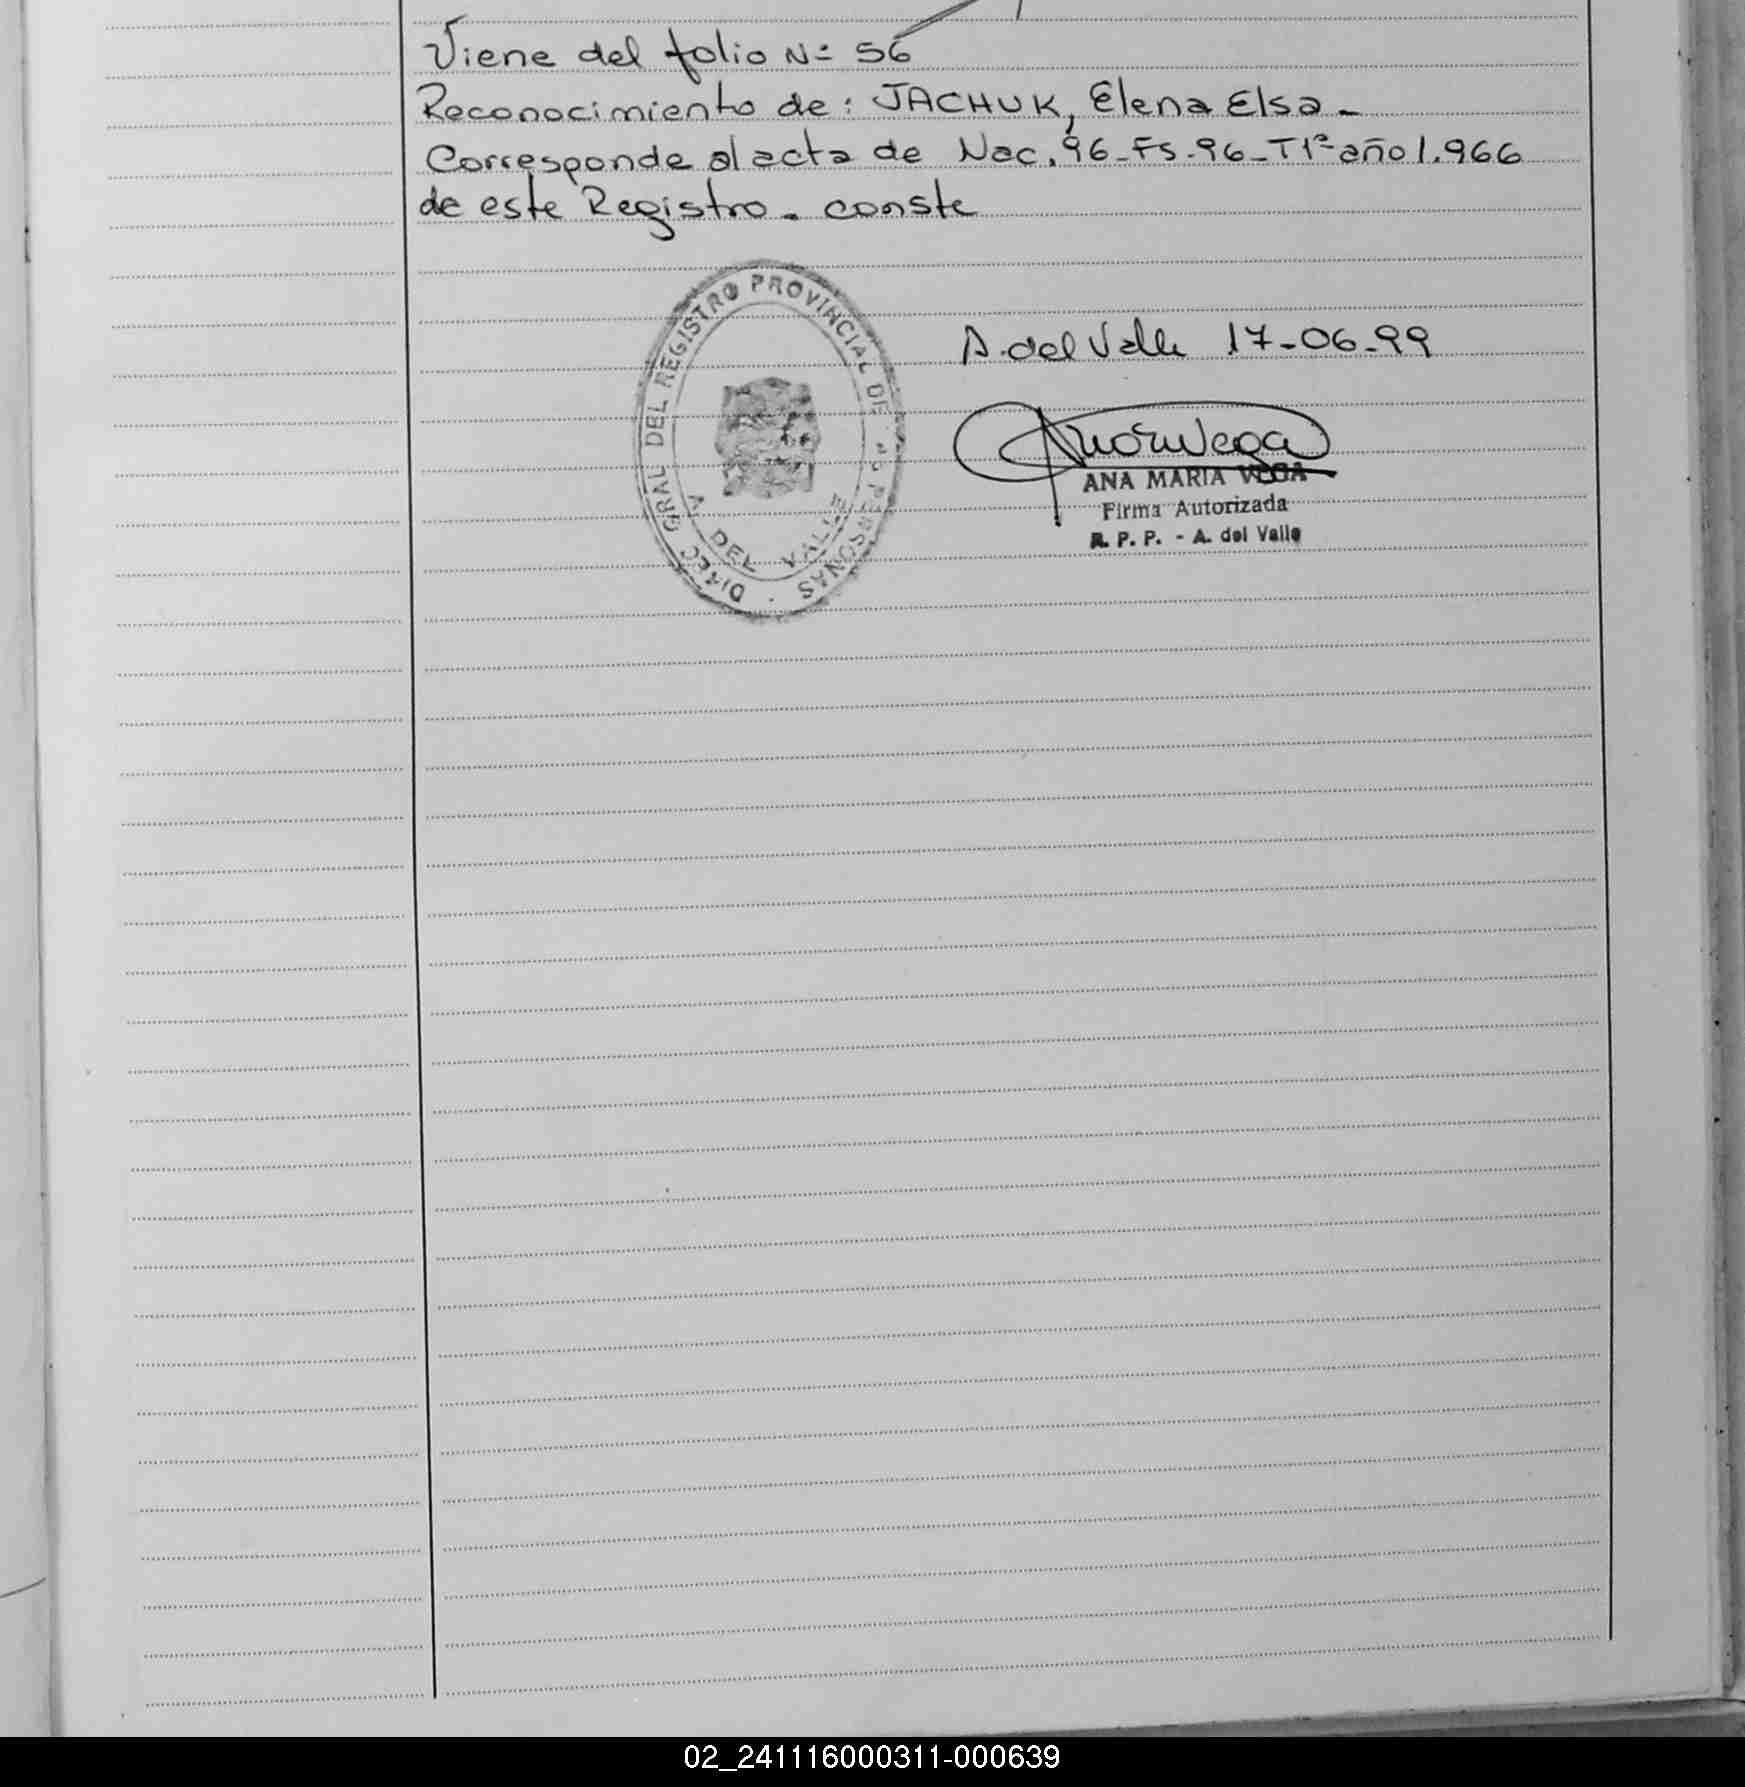 Viene del folio Nº 56
Reconocimiento de: JACHUK, Elena Elsa -
Corresponde al acta de Nac. 96 - Fs. 96 - T1º año 1.966
de este Registro. conste
DIREC GRAL DEL REGISTRO PROVINCIAL DE LAS PERSONAS
A. DEL VALLE
A. del Valle 17-06-99
ANA MARIA VEGA
Firma Autorizada
R. P. P. - A. del Valle
02_241116000311-000639